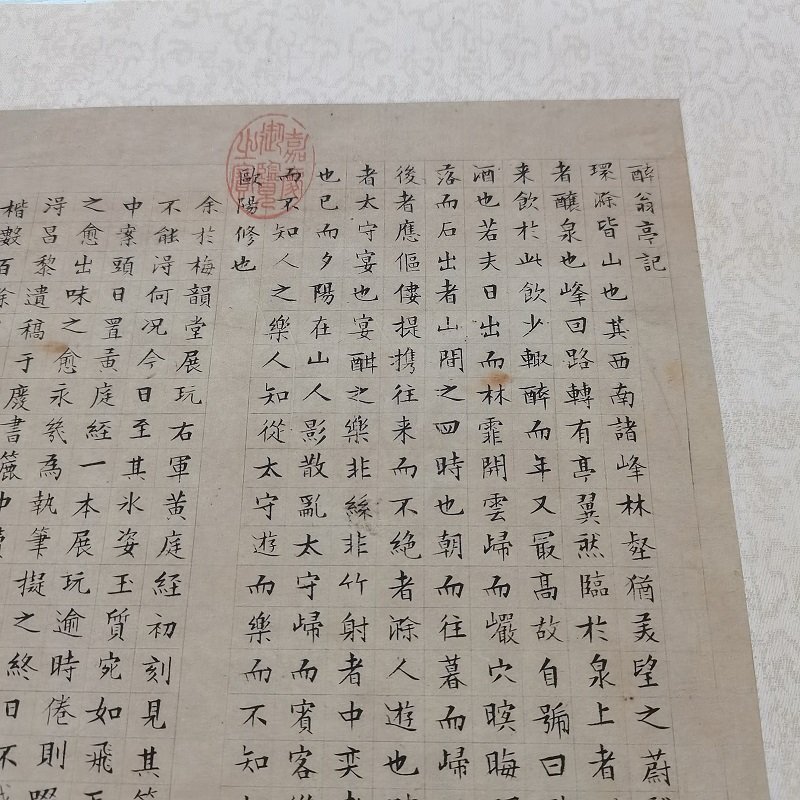 醉翁亭記
環滁皆山也其西南諸峰林壑猶美望之蔚
者釀泉也峰回路轉有亭翼然臨於泉上者
来飲於此飲少輒醉而年又最髙故自號曰
酒也若夫日出而林霏開雲歸而巖穴暝晦
落而石出者山間之四時也朝而往暮而歸
後者應傴僂提携往来而不絶者滁人遊也
者太守宴也宴酣之樂非絲非竹射者中奕
也已而夕陽在山人影散亂太守歸而賓客
而不知人之樂人知從太守遊而樂而不知
歐陽修也
余於梅韻堂展玩右軍黄庭經初刻見其
不能淂何况今日至其氷姿玉質宛如飛
中案頭日置黄庭經一本展玩逾時倦則
之愈出味之愈永幾為執筆擬之終日不
淂昌黎遺稿于慶書簏中
楷數百餘
嘉慶御覽之寶